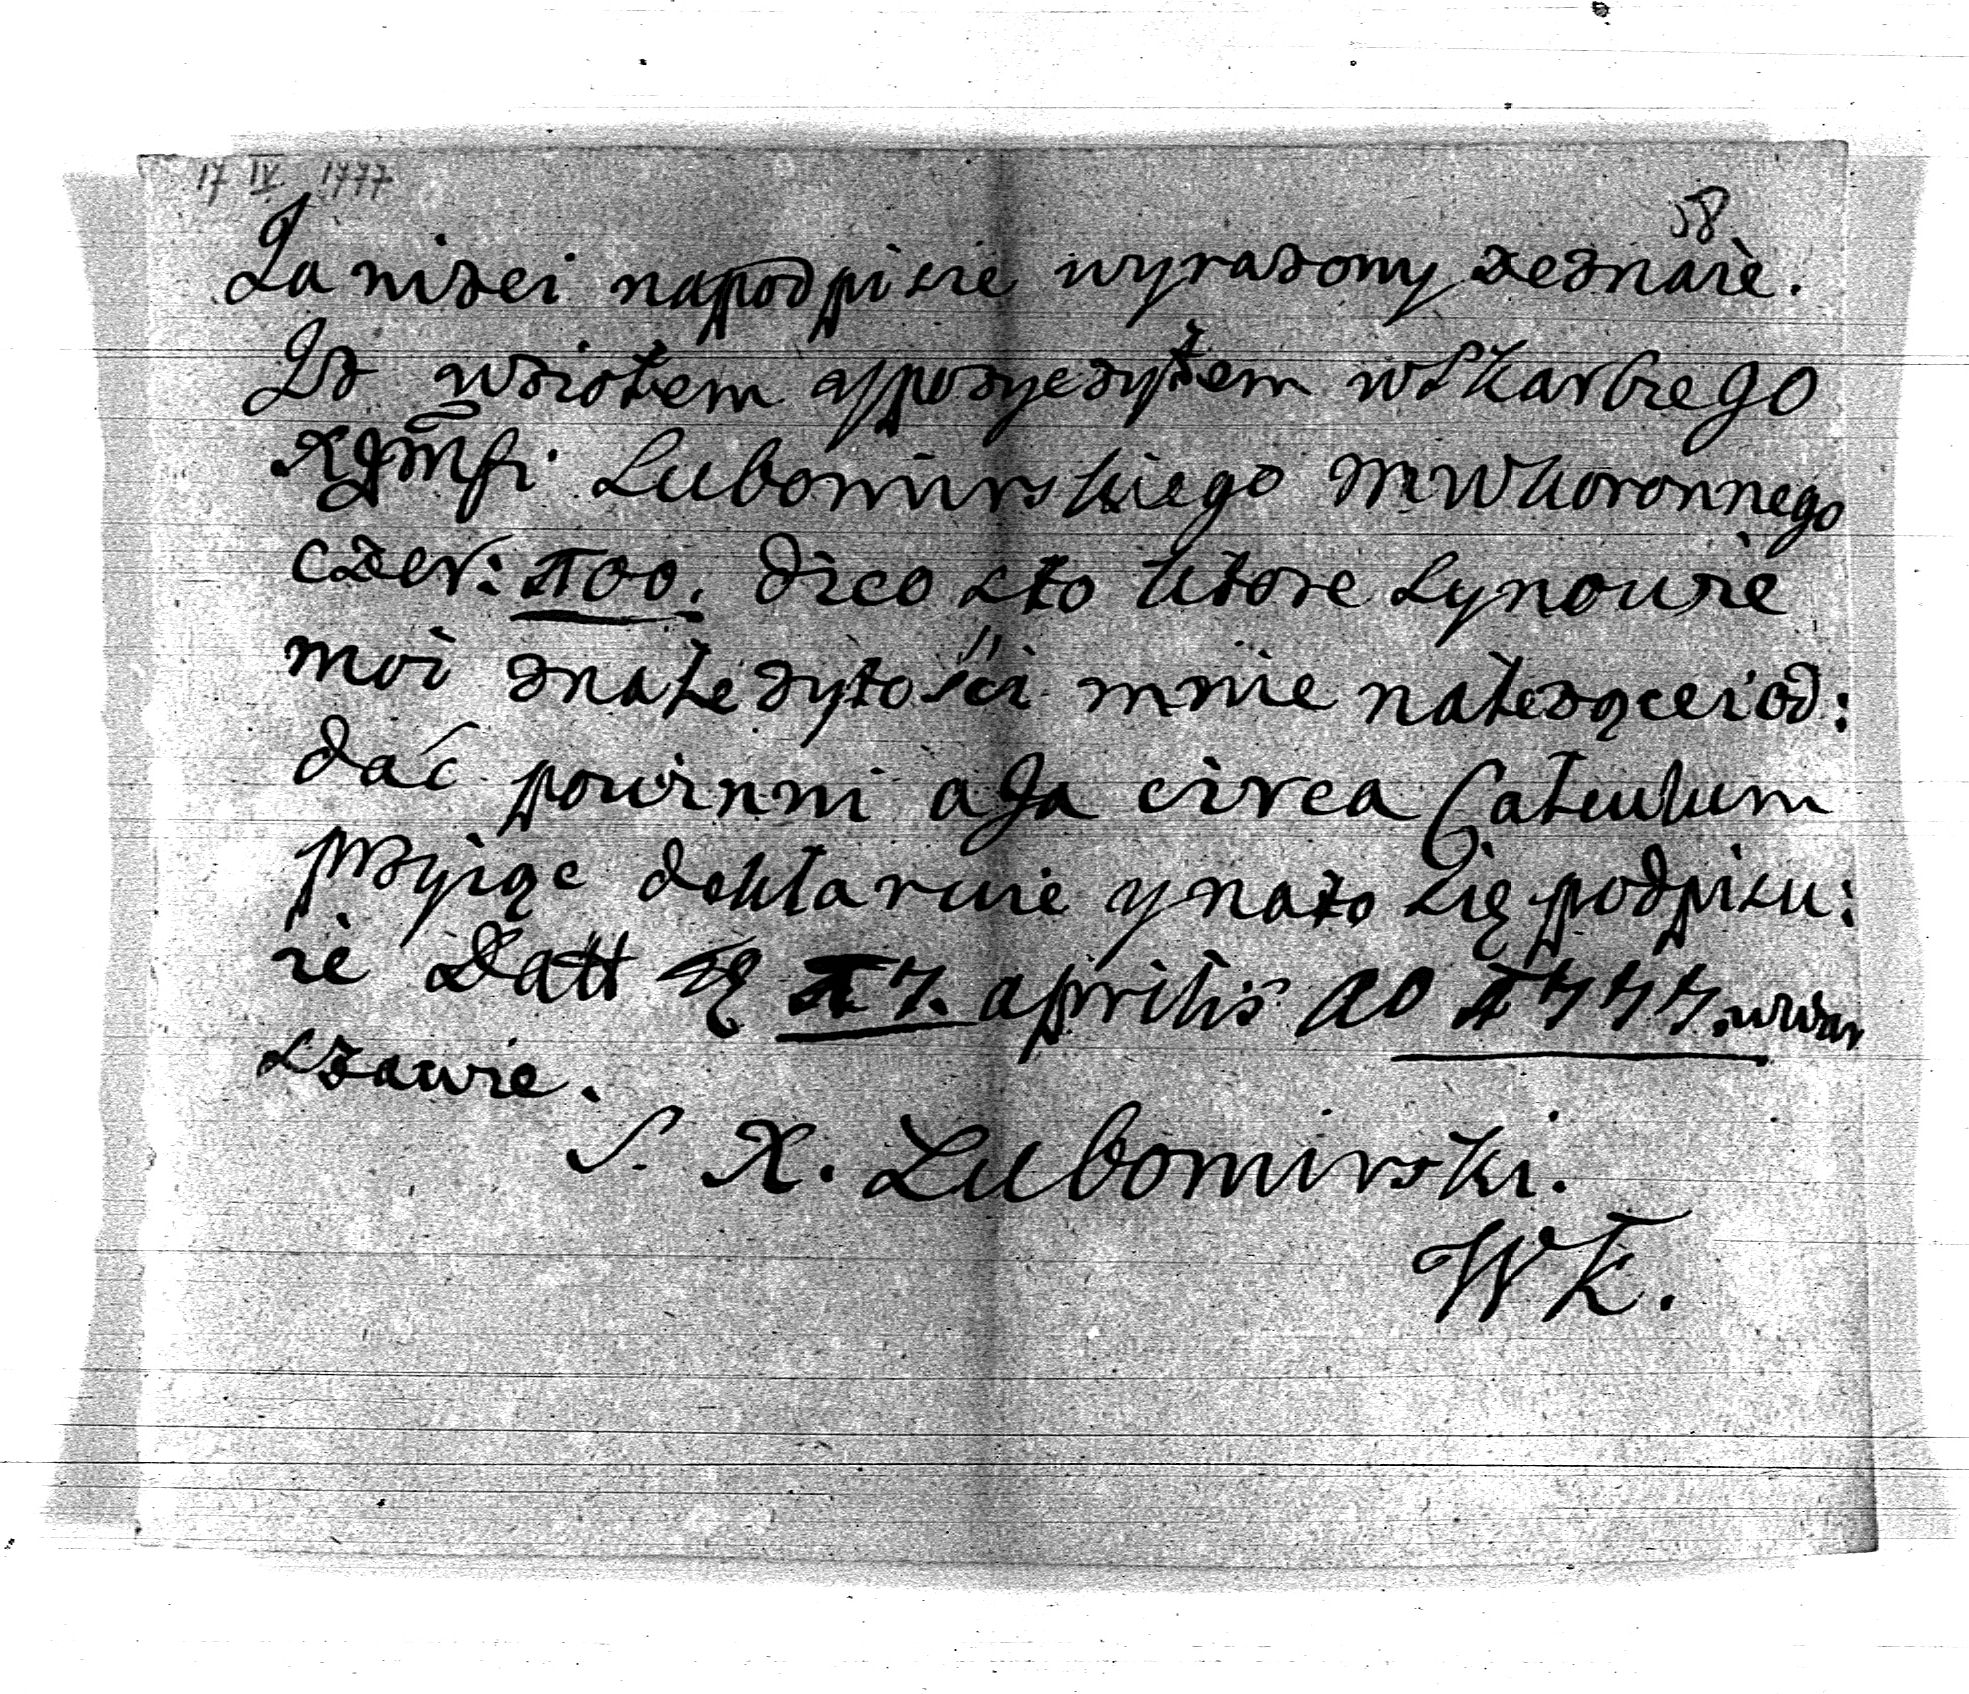 17 IV 1777
58
Ja nizei napodpisie wyrazony zeznaie.
Iz wziołem ypozyczyłem wSkarbie go
Lubomirskiego MW koronnego
czer: 100. dico sto ktore Synowie
moi znależytości mnie należącei od:
dać powinni a Ja circa Calculum
przyiąc deklaruie y nato Się podpisu:
ie Datt 17. aprilis Ao 1777. wWar
szawie.
S. X. Lubomirski.
WK.